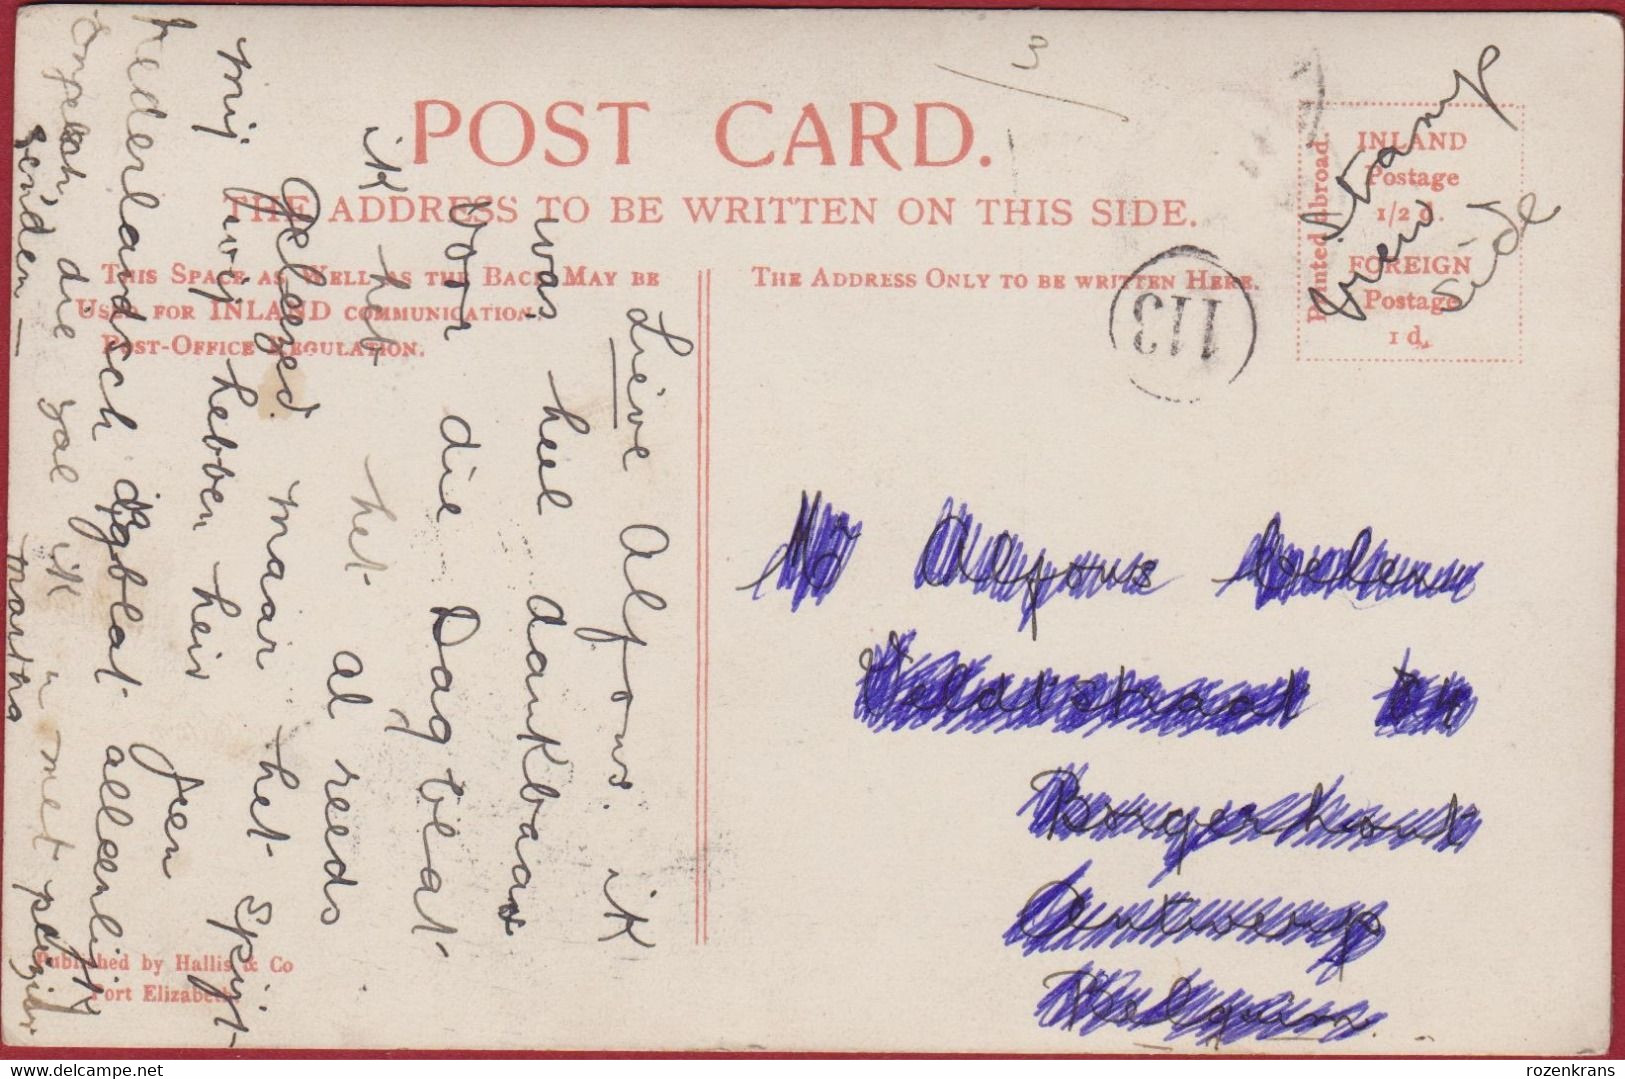 POST CARD.
THE ADDRESS TO BE WRITTEN ON THIS SIDE.
THIS SPACE AS WELL AS THE BACK MAY BE
USED FOR INLAND COMMUNICATION.
POST-OFFICE REGULATION.
THE ADDRESS ONLY TO BE WRITTEN HERE.
Printed Abroad.
INLAND
Postage
1/2 d.
FOREIGN
Postage
1 d.
Stamp
View Side
113
3
Lieve Alfons. ik
was heel dankbaar
voor die Dagblat
ik heb het al reeds
Gelezed. maar het Spijt
mij wij hebben heir geen
nederlandsch dagblat alleenlijk
die zal ik u met plezier
zenden —
martha
Mr Alfons
Borgerhout
Antwerp
Belgium.
Published by Hallis & Co
Port Elizabeth.
rozenkrans